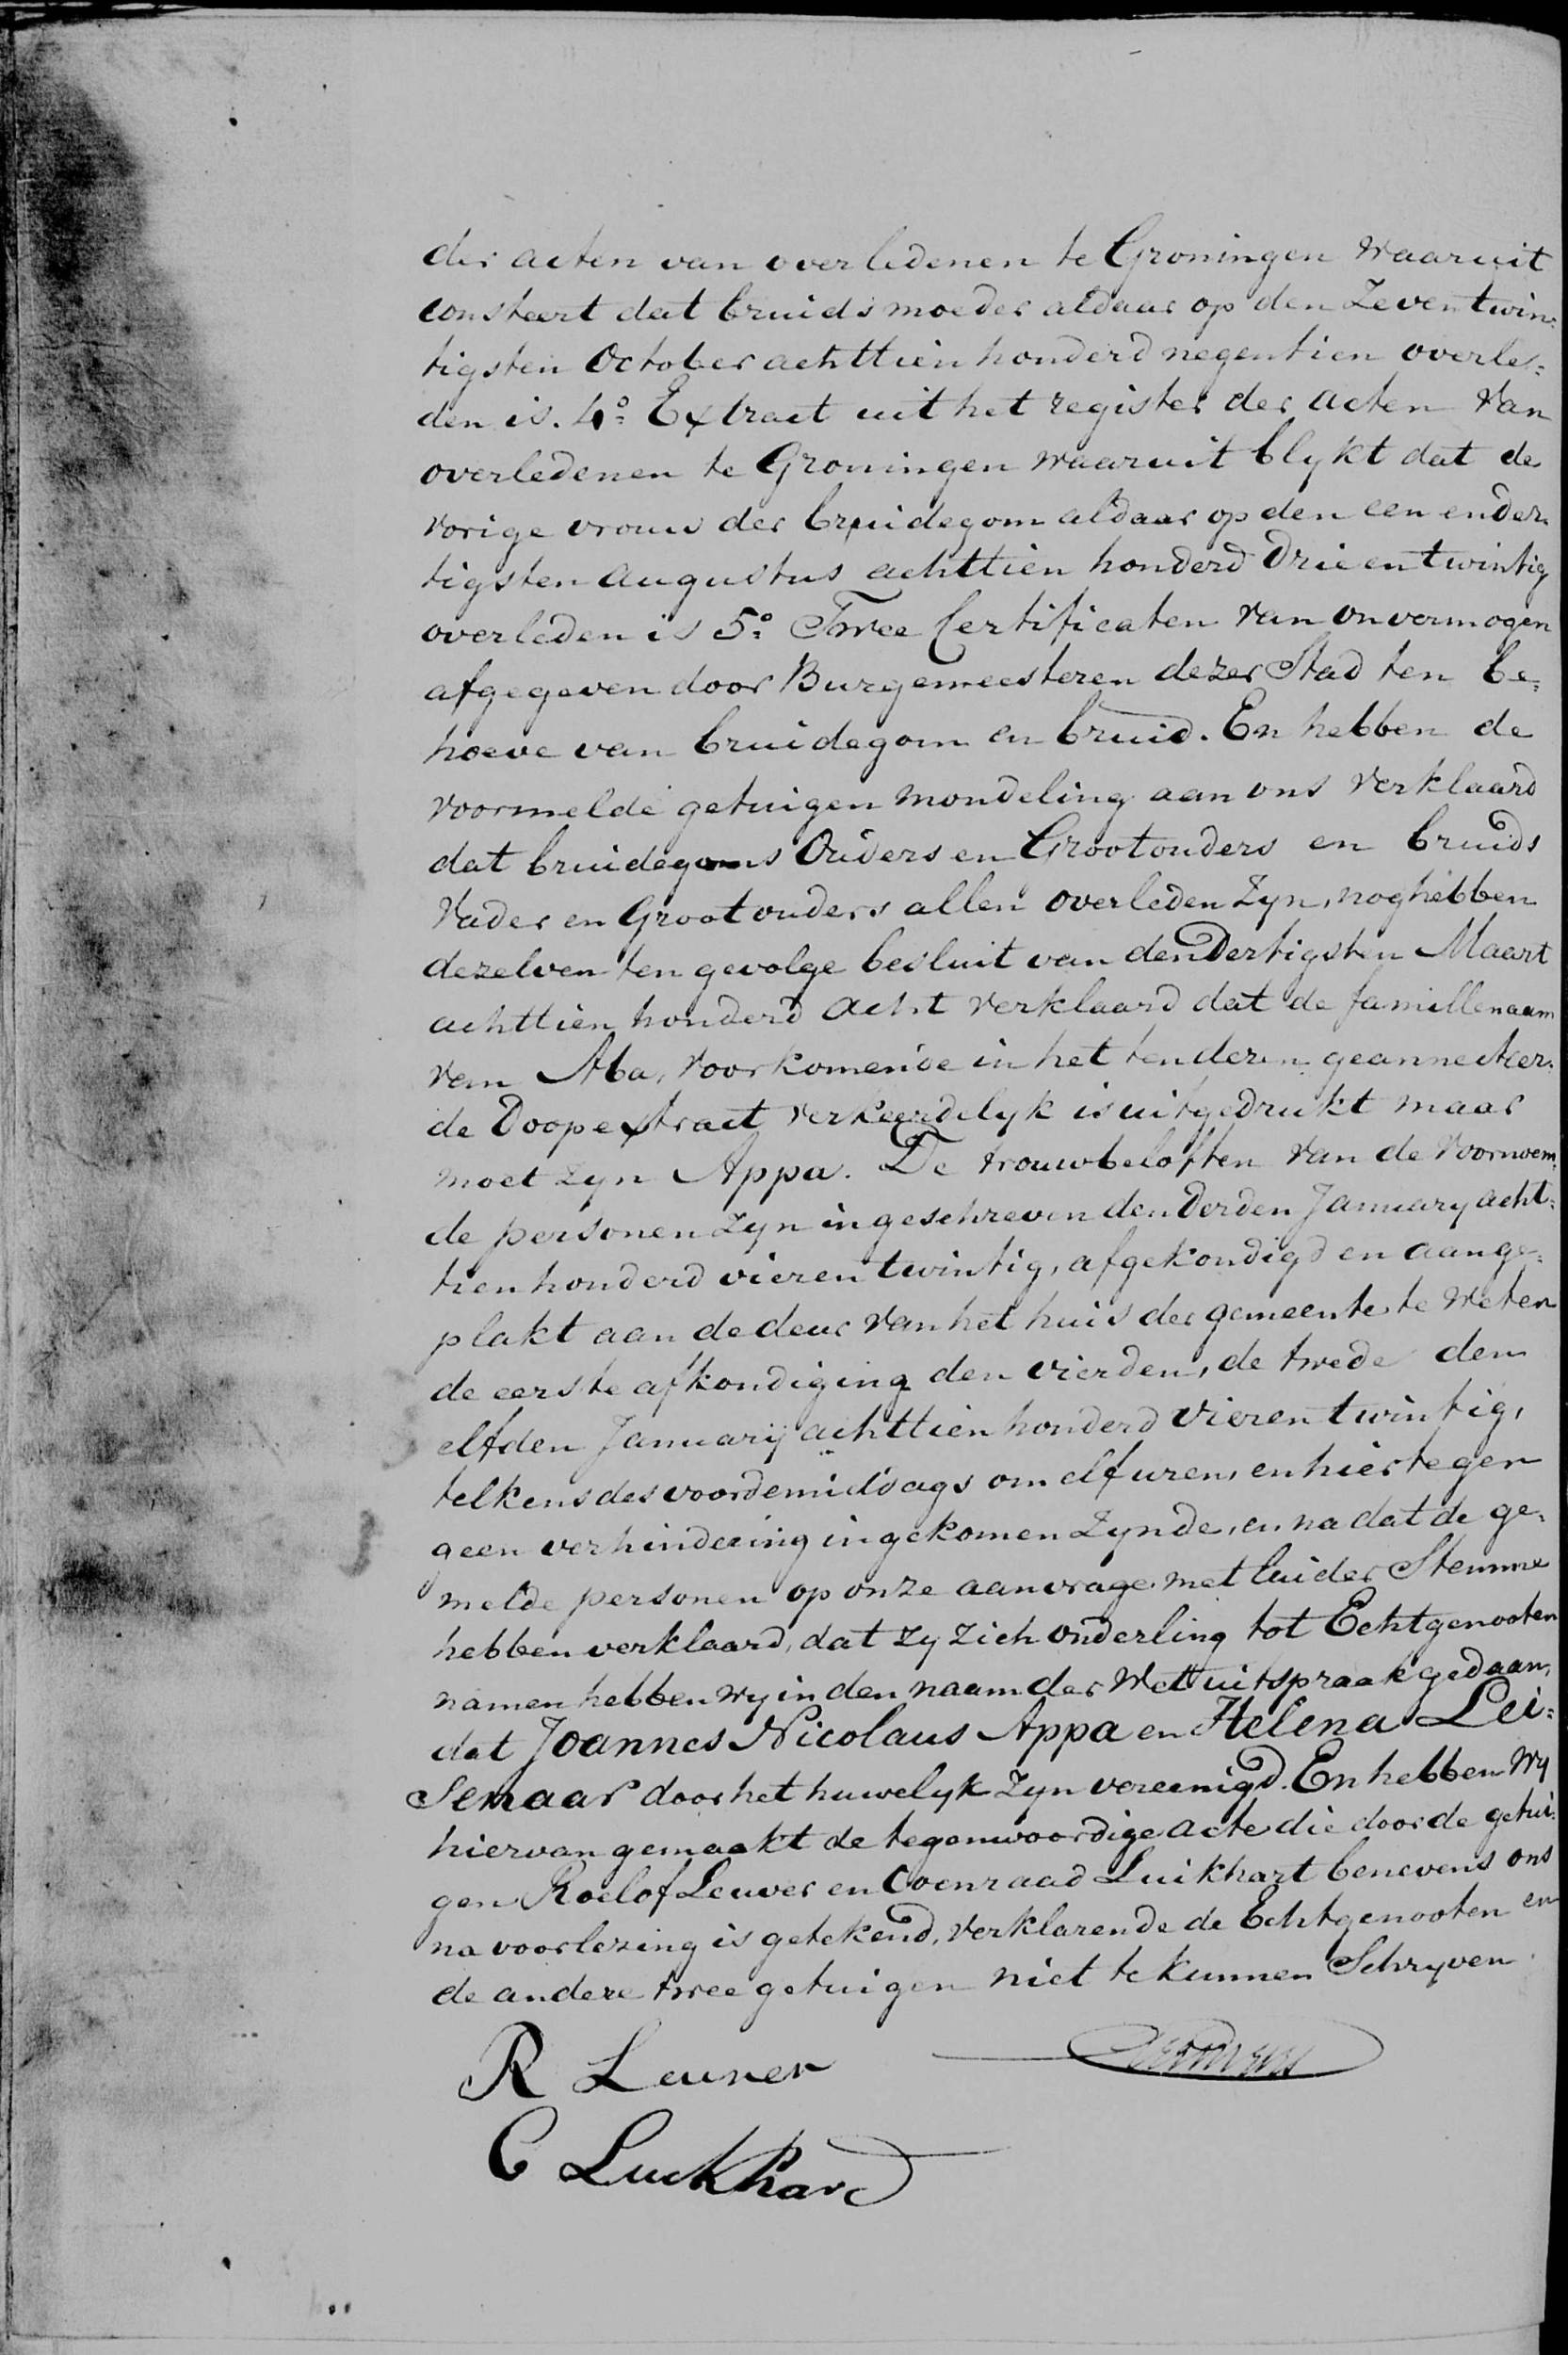 der acten van overledenen te Groningen waaruit
consteert dat bruids moeder aldaar op den Zeventwin=
tigsten October achttien honderd negentien overle=
den is. 4o: Extract uit het register der acten van
overledenen te Groningen waaruit blykt dat de
vorige vrouw der bruidegom aldaar op den een en der
tigsten augustus achttien honderd drie en twintig
overleden is 5o: Twee Certificaten van onvermogen
afgegeven door Burgemeesteren dezer Stad ten be=
hoeve van bruidegom en bruid. En hebben de
voormelde getuigen mondeling aan ons verklaard
dat bruidegoms Ouders en Grootouders en bruids
Vader en Grootouders allen overleden Zyn, nog hebben
dezelven ten gevolge besluit van den Dertigsten Maart
achttien honderd acht verklaard dat de famillenaam
van Aba, voorkomende in het ten dezen geannecteer=
de Doopextract verkeerdelyk is uitgedrukt maar
moet zyn Appa. De trouwbeloften van de voornoem=
de personen zyn ingeschreven den derden January acht=
tien honderd vieren twintig, afgekondigd en aange=
plakt aan de deur van het huis der gemeente, te weten
de eerste afkondiging den vierden, de twede den
elfden January achttien honderd vieren twintig,
telkens des voordemiddags om elf uren, en hiertegen
geen verhindering ingekomen Zynde, en nadat de ge=
melde personen op onze aanvrage met luider Stemme
hebben verklaard, dat zy zich onderling tot Echtgenooten
namen hebben wy in den naam der Wet uitspraak gedaan,
dat Joannes Nicolaus Appa en Helena Lei=
Semaar door het huwelyk Zyn vereenigd. En hebben Wy
hiervan gemaakt de tegenwoordige acte die door de getui=
gen Roelof Leuver en Coenraad Luikhart benevens ons
na voorlezing is getekend, verklarende de Echtgenooten en
de andere twee getuigen niet te kunnen Schryven
R Leuver
C Luckhard